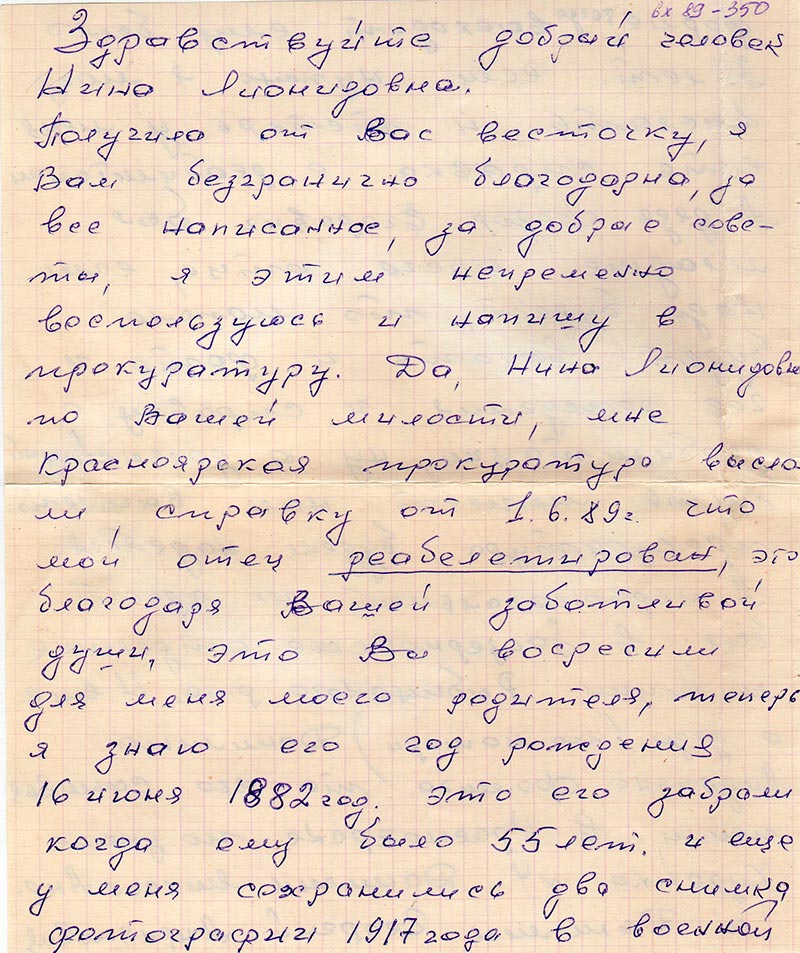 вх 89-350
Здравствуйте добрый человек
Нина Лионидовна.
Получила от Вас весточку, я
Вам безгранично благодарна, за
все написанное, за добрые сове-
ты, я этим непременно
воспользуюсь и напишу в
прокуратуру. Да, Нина Лионидовна
по Вашей милости, мне
Красноярская прокуратура высла
ли справку от 1.6.89г. что
мой отец реабелетирован, это
благодаря Вашей заботливой
души, это Вы восресили
для меня моего родителя, теперь
я знаю его год рождения
16 июня 1882 год. это его забрали
когда ему было 55 лет. и еще
у меня сохранились два снимка
фотографии 1917 года в военной